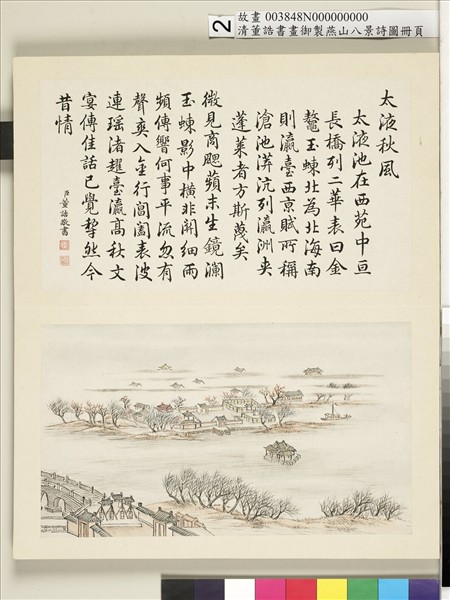 2
故畫 003848N000000000
清董誥書畫御製燕山八景詩圖冊頁
太液秋風
太液池在西苑中亘
長橋列二華表曰金
鰲玉蝀北為北海南
則瀛臺西京賦所稱
滄池漭沆列瀛洲夾
蓬萊者方斯蔑矣
微見商飇蘋末生鏡瀾
玉蝀影中橫非關細雨
頻傳響何事平流忽有
聲爽入金行閶闔表波
連瑤渚趯臺瀛高秋文
宴傳佳話已覺犂然今
昔情
臣董誥敬書